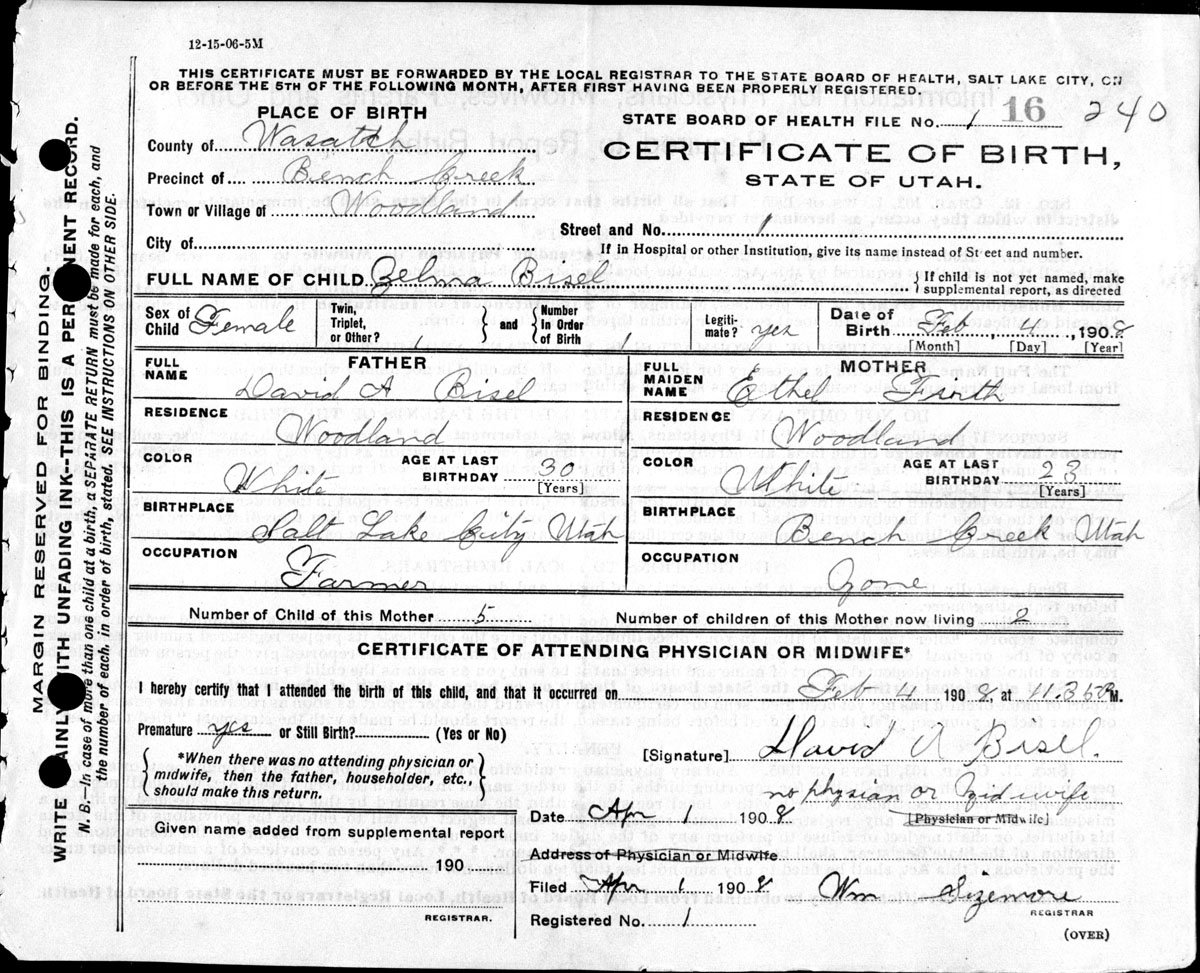 12-15-06-5M
THIS CERTIFICATE MUST BE FORWARDED BY THE LOCAL REGISTRAR TO THE STATE BOARD OF HEALTH, SALT LAKE CITY, ON
OR BEFORE THE 5TH OF THE FOLLOWING MONTH, AFTER FIRST HAVING BEEN PROPERLY REGISTERED.
PLACE OF BIRTH
County of Wasatch
Precinct of Bench Creek
Town or Village of Woodland
City of
STATE BOARD OF HEALTH FILE No. 1 16 240
CERTIFICATE OF BIRTH,
STATE OF UTAH.
Street and No. 1
If in Hospital or other Institution, give its name instead of Street and number.
FULL NAME OF CHILD Zelma Bisel { If child is not yet named, make
supplemental report, as directed
Sex of Child Female Twin, Triplet, or Other? } and { Number In Order of Birth Legiti-mate? yes Date of Birth Feb 4, 1908
[Month] [Day] [Year]
FATHER
FULL NAME David A Bisel
RESIDENCE
Woodland
COLOR White AGE AT LAST BIRTHDAY 30
[Years]
BIRTHPLACE
Salt Lake City Utah
OCCUPATION
Farmer
MOTHER
FULL MAIDEN NAME Ethel
RESIDENCE
Woodland
COLOR White AGE AT LAST BIRTHDAY 23
[Years]
BIRTHPLACE
Bench Creek Utah
OCCUPATION
Number of Child of this Mother 5 Number of children of this Mother now living 2
CERTIFICATE OF ATTENDING PHYSICIAN OR MIDWIFE*
I hereby certify that I attended the birth of this child, and that it occurred on Feb 4 1908 at M.
Premature yes or Still Birth? (Yes or No)
{ *When there was no attending physician or
midwife, then the father, householder, etc.,
should make this return. }
[Signature] David A Bisel.
no physian or Midwife
[Physician or Midwife]
Date Apr 1 1908
Given name added from supplemental report
190
REGISTRAR.
Address of Physician or Midwife
Filed Apr 1 1908 Wm Sizemore
REGISTRAR
Registered No. 1
(OVER)
MARGIN RESERVED FOR BINDING.
WRITE AINLY WITH UNFADING INK--THIS IS A PER ENT RECORD.
N. B.--In case of more than one child at a birth, a SEPARATE RETURN must be made for each, and
the number of each, in order of birth, stated. SEE INSTRUCTIONS ON OTHER SIDE.